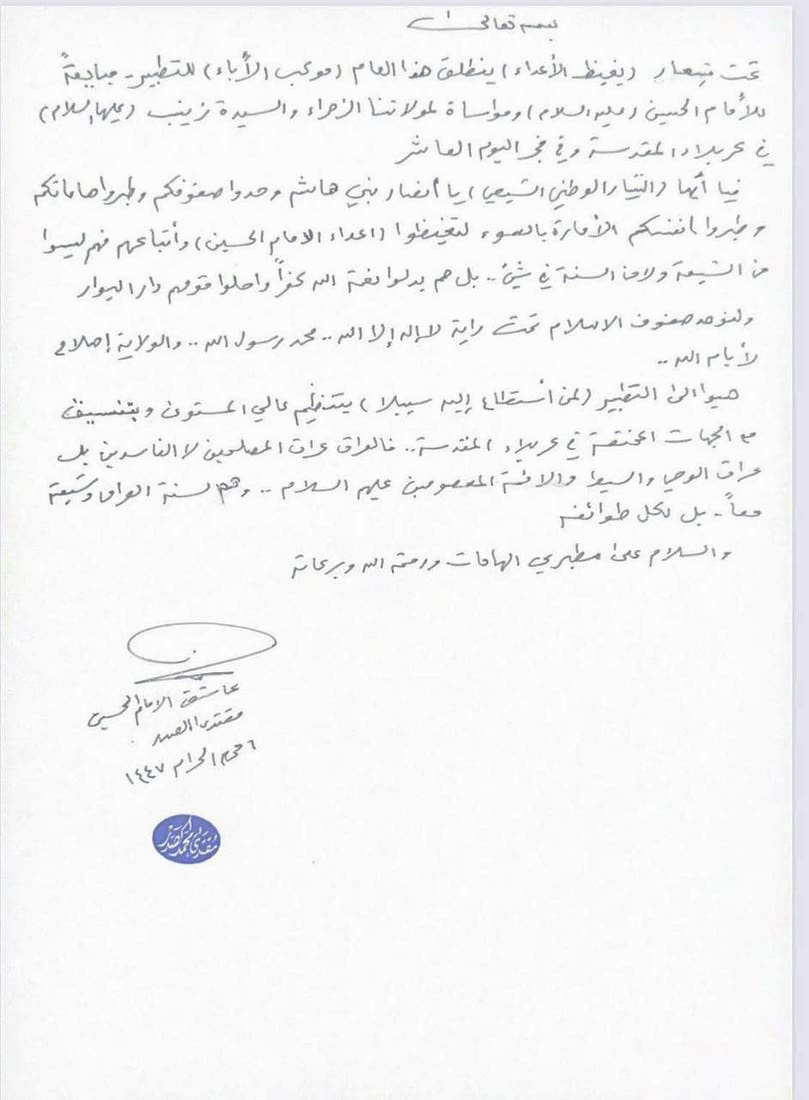 بسمه تعالى
تحت شعار (يغيظ الأعداء) ينطلق هذا العام (موكب الأباء) للتطبير.. مبايعةً
للأمام الحسين (عليه السلام) ومواساة لمولاتنا الزهراء والسيدة زينب (عليها السلام)
في كربلاء المقدسة وفي فجر اليوم العاشر
فيا أيها (التيار الوطني الشيعي) يا أنصار بني هاشم وحدوا صفوفكم وطبروا هاماتكم
وطبروا أنفسكم الأمارة بالسوء لتغيظوا (اعداء الامام الحسين) وأتباعهم فهم ليسوا
من الشيعة ولا من السنة في شيء.. بل هم بدلوا نعمة الله كفراً واحلوا قومهم دار البوار
ولنوحد صفوف الاسلام تحت راية لا إله إلا الله.. محمد رسول الله.. والولاية إصلاح
لأيام الله..
هبوا الى التطبير (لمن أستطاع إليه سبيلا) بتنظيم عالي المستوى وبتنسيق
مع الجهات المختصة في كربلاء المقدسة.. فالعراق عراق المصلحين لا الفاسدين بل
عراق الوصي والسبط والائمة المعصومين عليهم السلام.. وهم لسنة العراق وشيعة
معاً.. بل لكل طوائفه
والسلام على مطبري الهامات ورحمة الله وبركاته
عاشق الامام الحسين
مقتدى الصدر
٦ محرم الحرام ١٤٤٧
مقتدى محمد الصدر